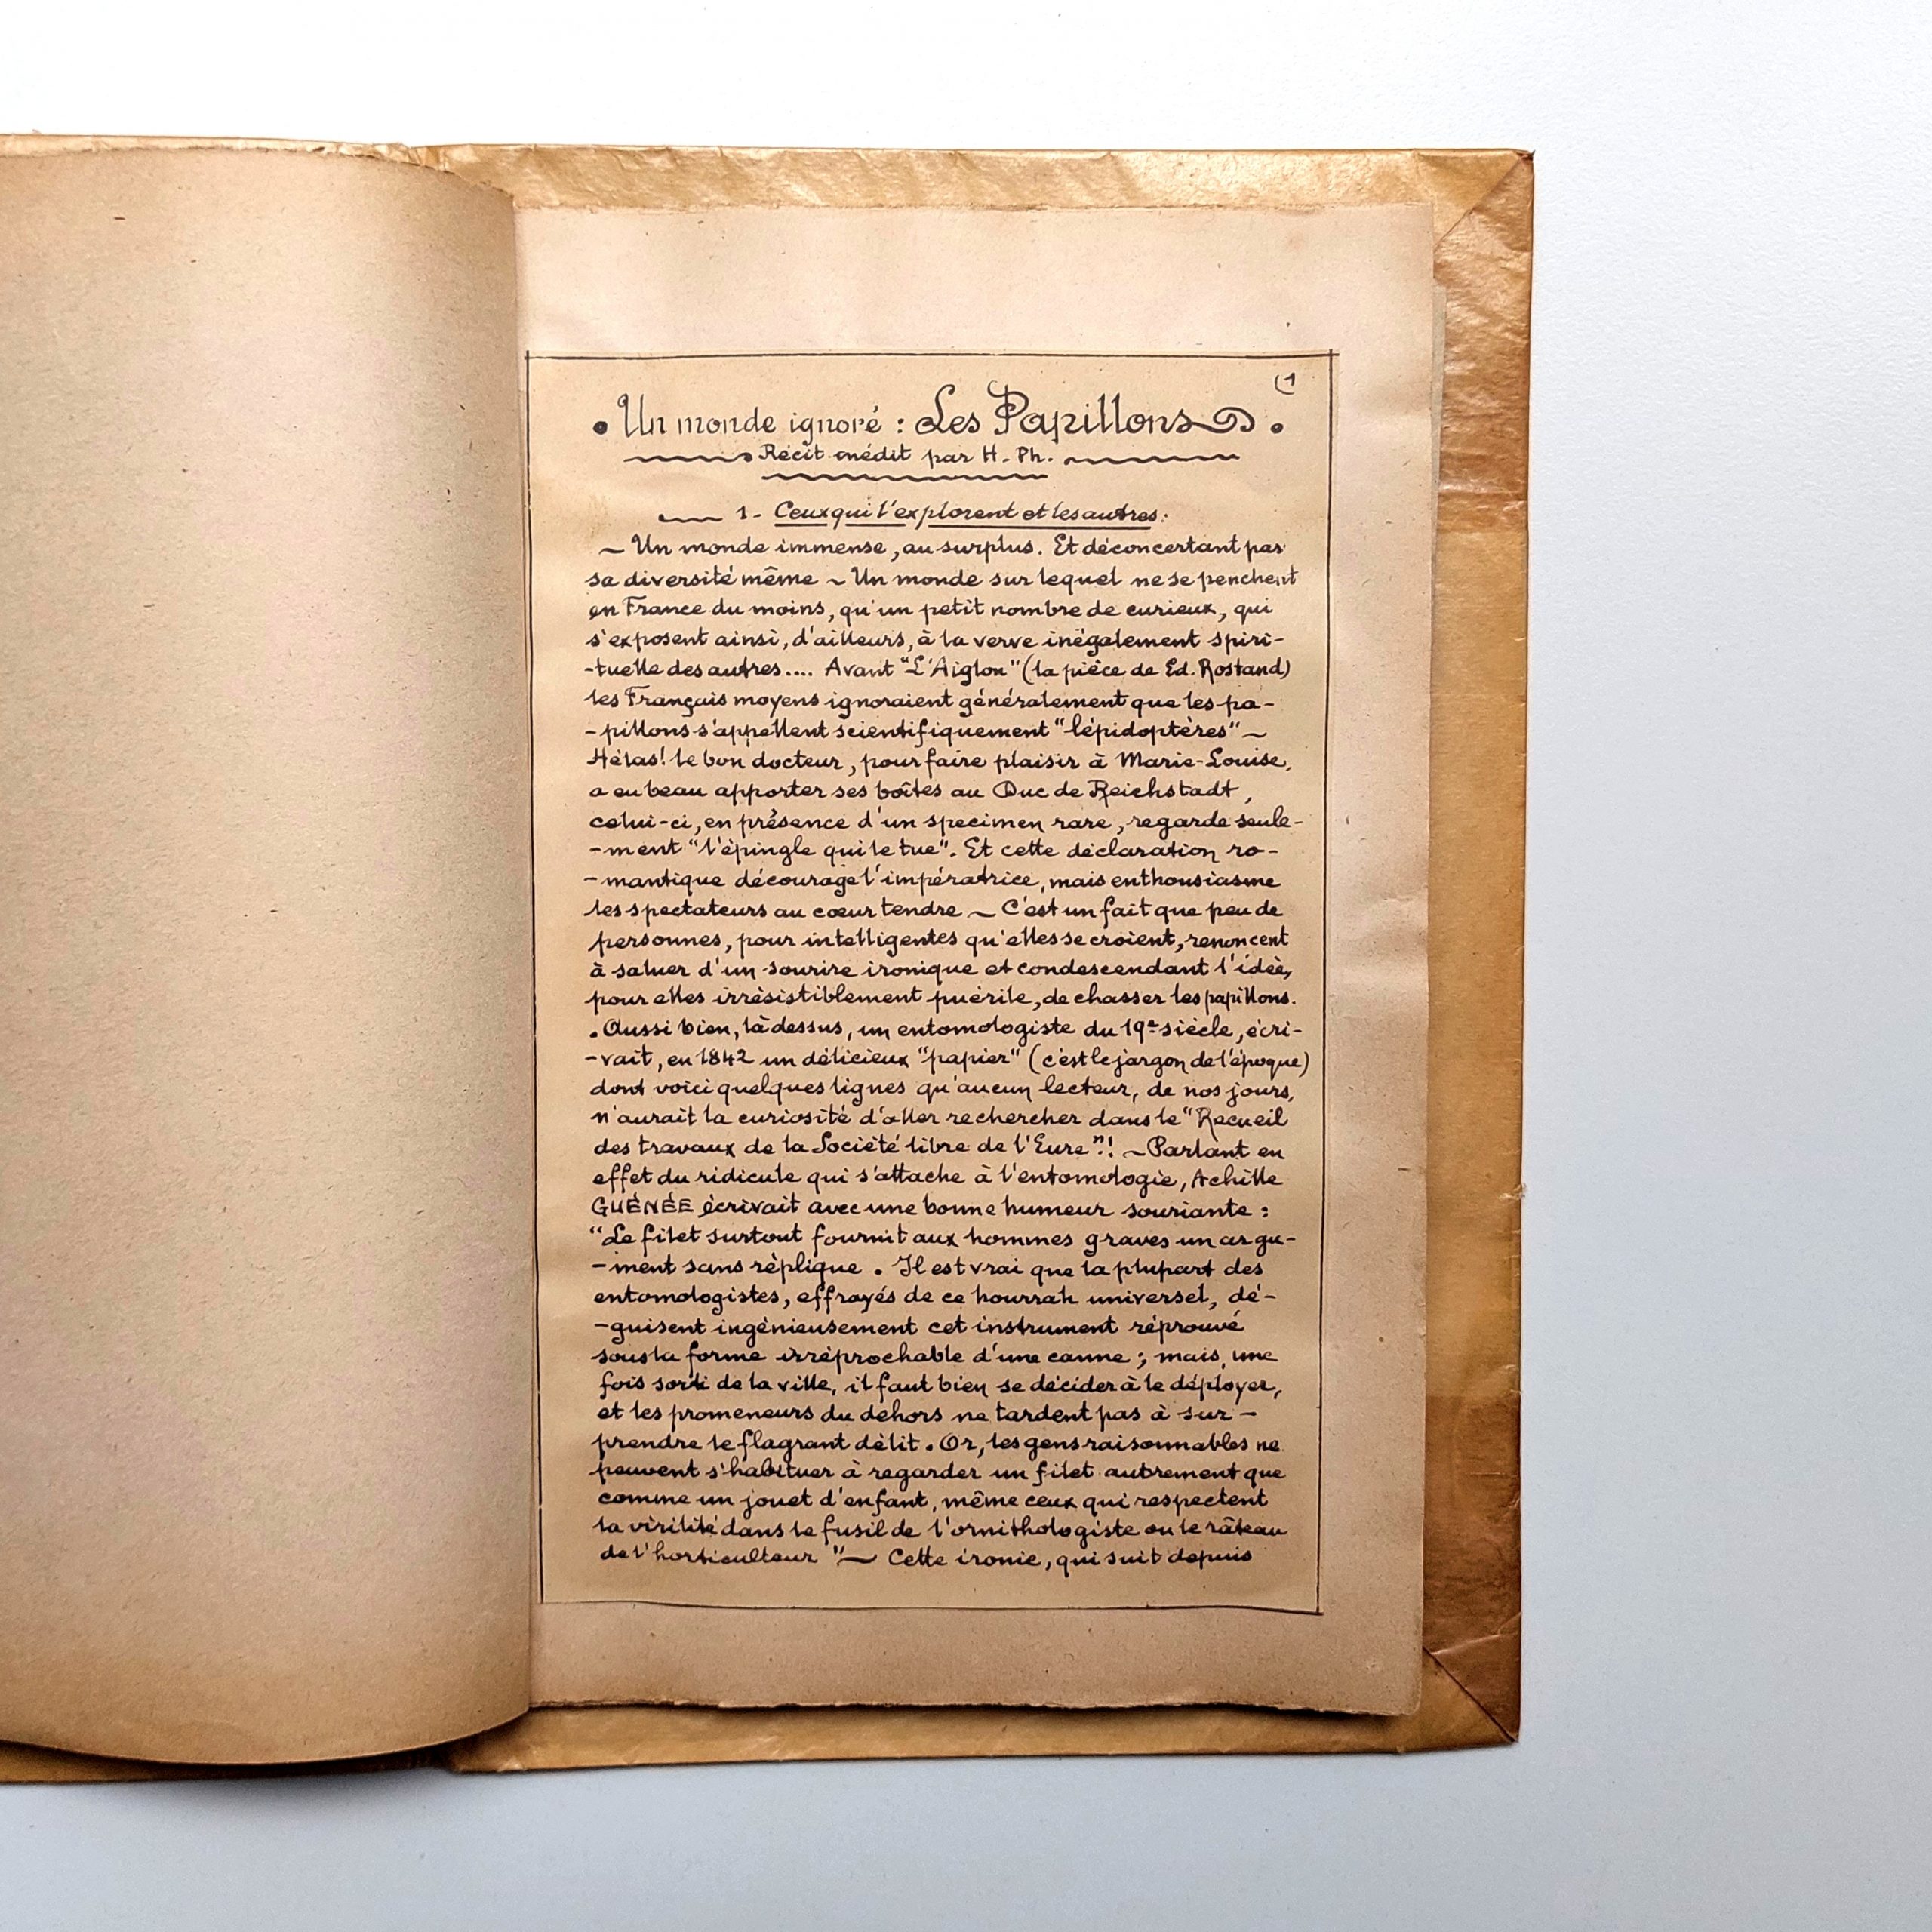 (1
• Un monde ignoré : Les Papillons •
Récit inédit par H. Ph.
1- Ceux qui l'explorent et les autres :
~ Un monde immense, au surplus. Et déconcertant par
sa diversité même ~ Un monde sur lequel ne se penchent
en France du moins, qu'un petit nombre de curieux, qui
s'exposent ainsi, d'ailleurs, à la verve inégalement spiri-
-tuelle des autres.... Avant "L'Aiglon" (la pièce de Ed. Rostand)
les Français moyens ignoraient généralement que les pa-
-pillons s'appellent scientifiquement "lépidoptères" ~
Hélas! le bon docteur, pour faire plaisir à Marie-Louise,
a eu beau apporter ses boîtes au Duc de Reichstadt,
celui-ci, en présence d'un specimen rare, regarde seule-
-ment "l'épingle qui le tue". Et cette déclaration ro-
-mantique décourage l'impératrice, mais enthousiasme
les spectateurs au cœur tendre ~ C'est un fait que peu de
personnes, pour intelligentes qu'elles se croient, renoncent
à saluer d'un sourire ironique et condescendant l'idée,
pour elles irrésistiblement puérile, de chasser les papillons.
. Aussi bien, là dessus, un entomologiste du 19e siècle, écri-
-vait, en 1842 un délicieux "papier" (c'est le jargon de l'époque)
dont voici quelques lignes qu'aucun lecteur, de nos jours,
n'aurait la curiosité d'aller rechercher dans le "Recueil
des travaux de la Société libre de l'Eure"! ~ Parlant en
effet du ridicule qui s'attache à l'entomologie, Achille
GUÉNÉE écrivait avec une bonne humeur souriante :
"Le filet surtout fournit aux hommes graves un argu-
-ment sans réplique. Il est vrai que la plupart des
entomologistes, effrayés de ce hourrah universel, dé-
-guisent ingénieusement cet instrument réprouvé
sous la forme irréprochable d'une canne ; mais, une
fois sorti de la ville, il faut bien se décider à le déployer,
et les promeneurs du dehors ne tardent pas à sur-
prendre le flagrant délit. Or, les gens raisonnables ne
peuvent s'habituer à regarder un filet autrement que
comme un jouet d'enfant, même ceux qui respectent
la virilité dans le fusil de l'ornithologiste ou le râteau
de l'horticulteur" ~ Cette ironie, qui suit depuis